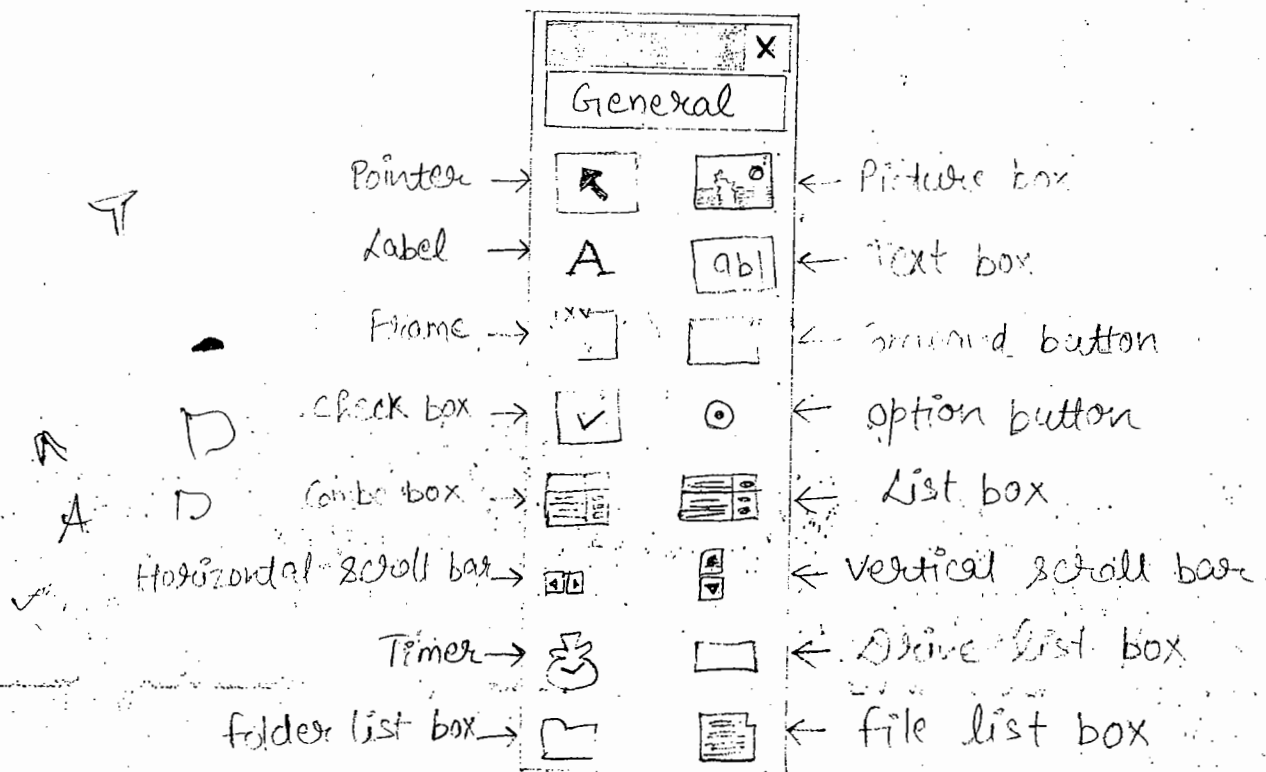 X
General
Pointer Picture box
Label A abl Text box
Frame xv button
check box option button
Combo box List box
Horizontal scroll bar vertical scroll bar
Timer Drive list box
folder list box file list box